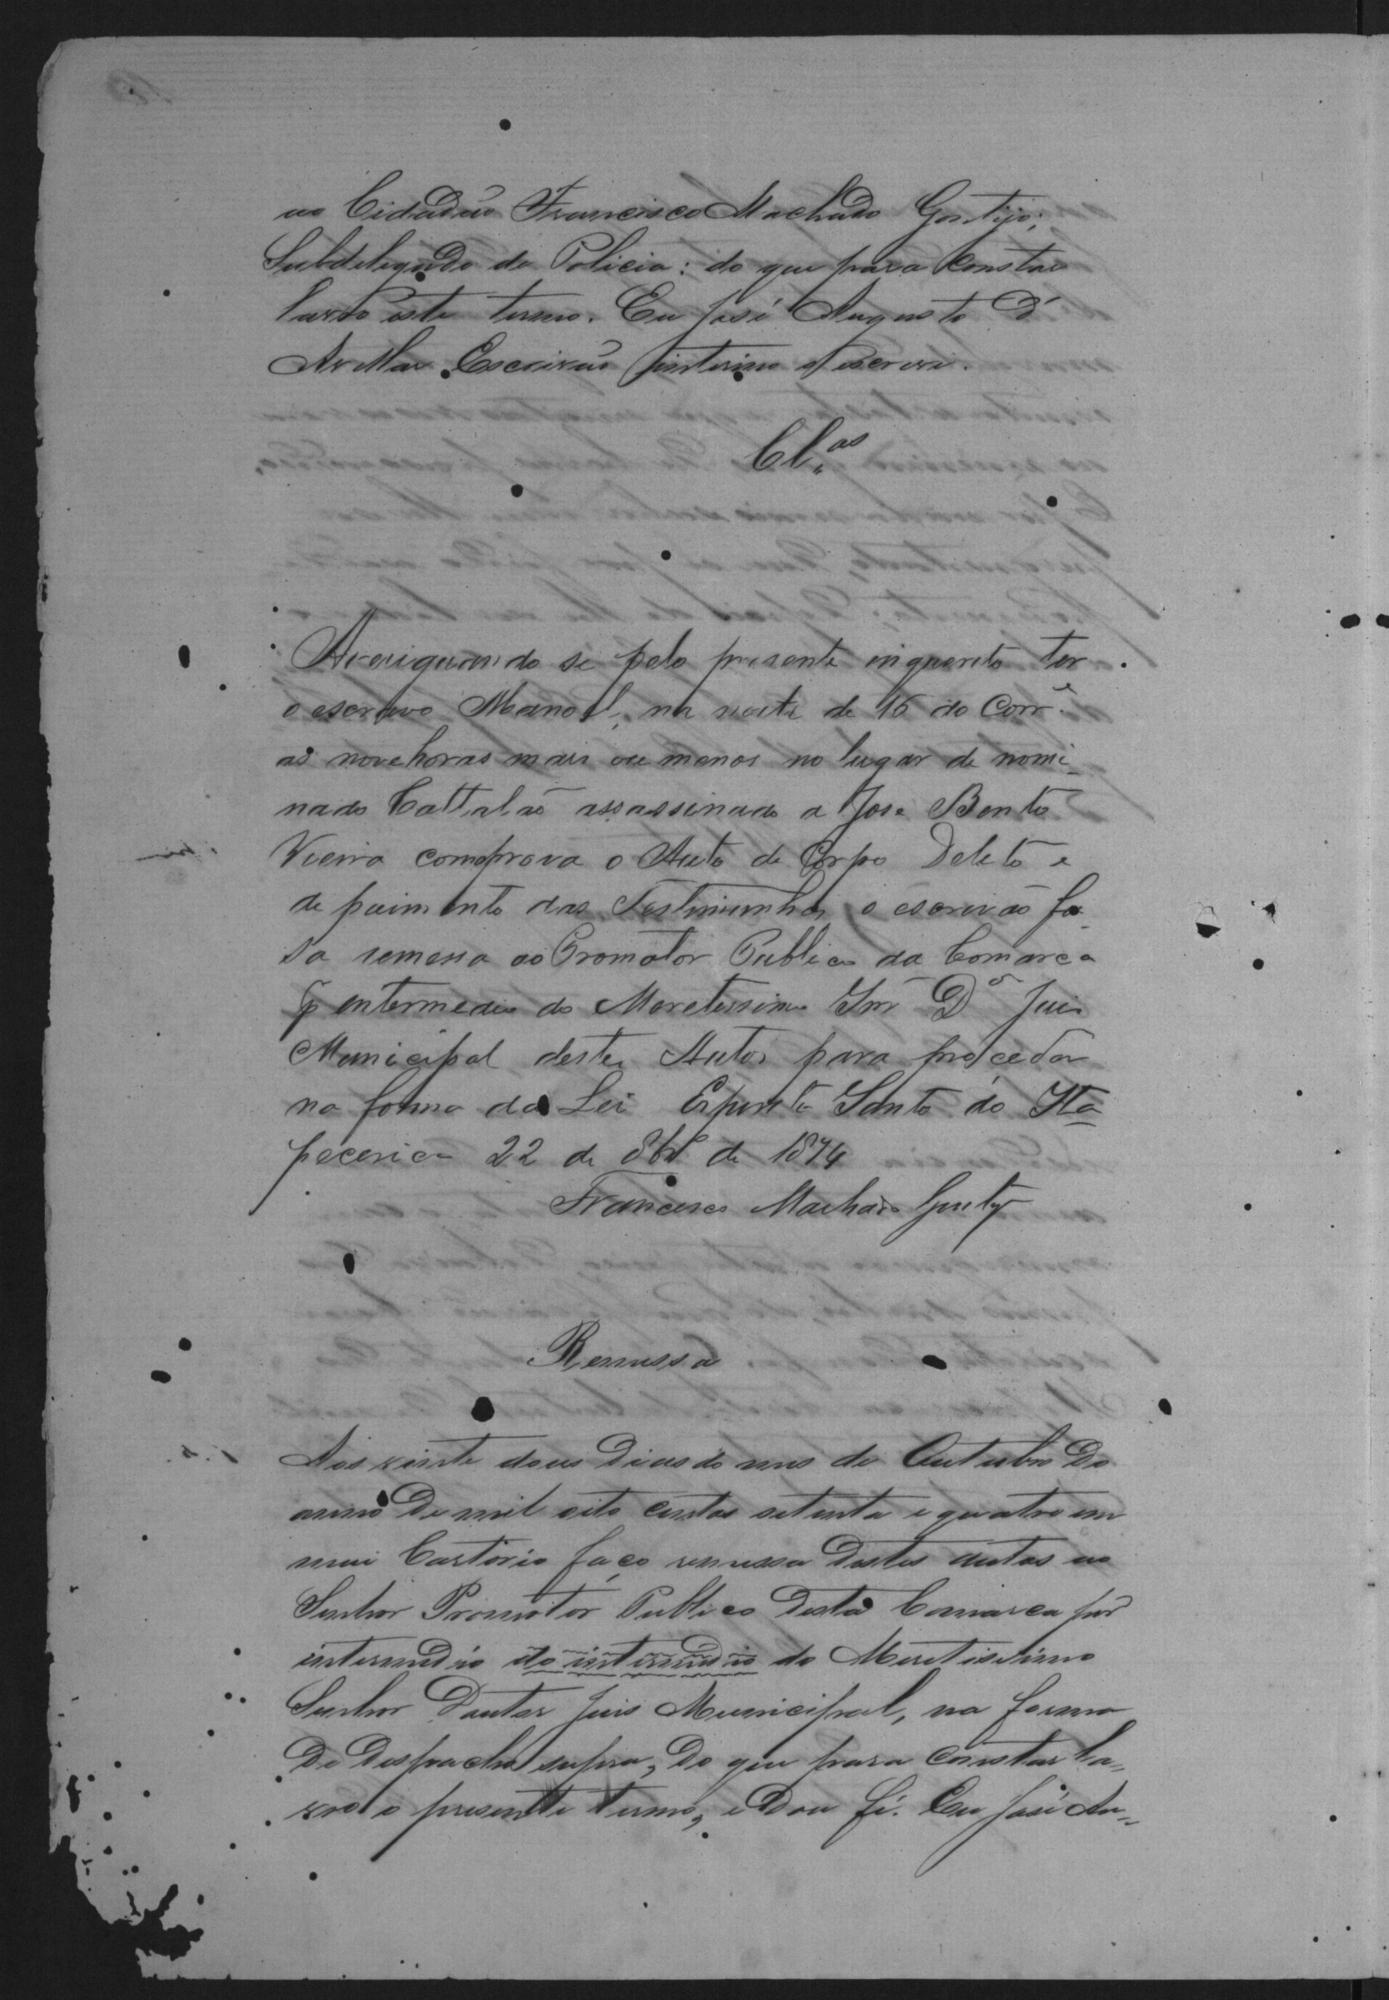 ao Cidadão Francisco Machado Gontijo,
Subdelegado de Policia: do que para constar
lavro este termo. Eu José Augusto d'
Avellar Escrivão interino o escrevi.
Cl.os
Averiguando se pelo presente inquerito ter
o escravo Manoel, na noite de 16 do Corr.e
as nove horas mais ou menos no lugar de nomi-
nado Cattalão assassinado a Jose Bento
Vieira comprova o Auto de Corpo Deleto e
de poimento das Testimunhas, o escrivão fa-
sa remessa ao Promotor Publico da Comarca
p intermedio do Moretissimo Snr Dor Juis
Municipal destes Autos para proceder
na forma da Lei Espirito Santo do Ita-
pecerica 22 de 8br de 1874
Francisco Machado Gontijo
Remessa
Aos vinte dous dias do mes de Outubro do
anno de mil oito centos setenta e quatro em
meu Cartorio faço remessa destes autos ao
Senhor Promotor Publico desta Comarca por
intermedio do intermedio do Meretissimo
Senhor Doutor Juis Municipal, na forma
do despacho supra, do que para constar la-
vro o presente termo, e dou fé. Eu José Au-